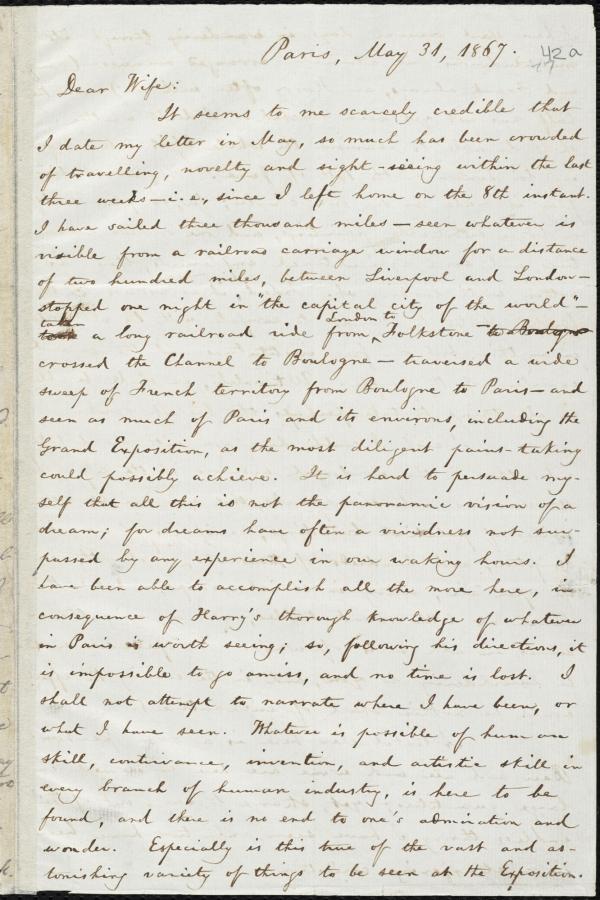 Paris, May 31, 1867.
42a
Dear Wife:
It seems to me scarcely credible that
I date my letter in May, so much has been crowded
of travelling, novelty and sight-seeing within the last
three weeks—i.e., since I left home on the 8th instant.
I have sailed three thousand miles—seen whatever is
visible from a railroad carriage window for a distance
of two hundred miles, between Liverpool and London—
stopped one night in "the capital city of the world"—
taken London to
took a long railroad ride from Folkstone to Boulogne
crossed the Channel to Boulogne—traversed a wide
sweep of French territory from Boulogne to Paris—and
seen as much of Paris and its environs, including the
Grand Exposition, as the most diligent pains-taking
could possibly achieve. It is hard to persuade my-
self that all this is not the panoramic vision of a
dream; for dreams have often a vividness not sur-
passed by any experience in our waking hours. I
have been able to accomplish all the more here, in
consequence of Harry's thorough knowledge of whatever
in Paris is worth seeing; so, following his directions, it
is impossible to go amiss, and no time is lost. I
shall not attempt to narrate where I have been, or
what I have seen. Whatever is possible of human
skill, contrivance, invention, and artistic skill in
every branch of human industry, is here to be
found, and there is no end to one's admiration and
wonder. Especially is this true of the vast and as-
tonishing variety of things to be seen at the Exposition.